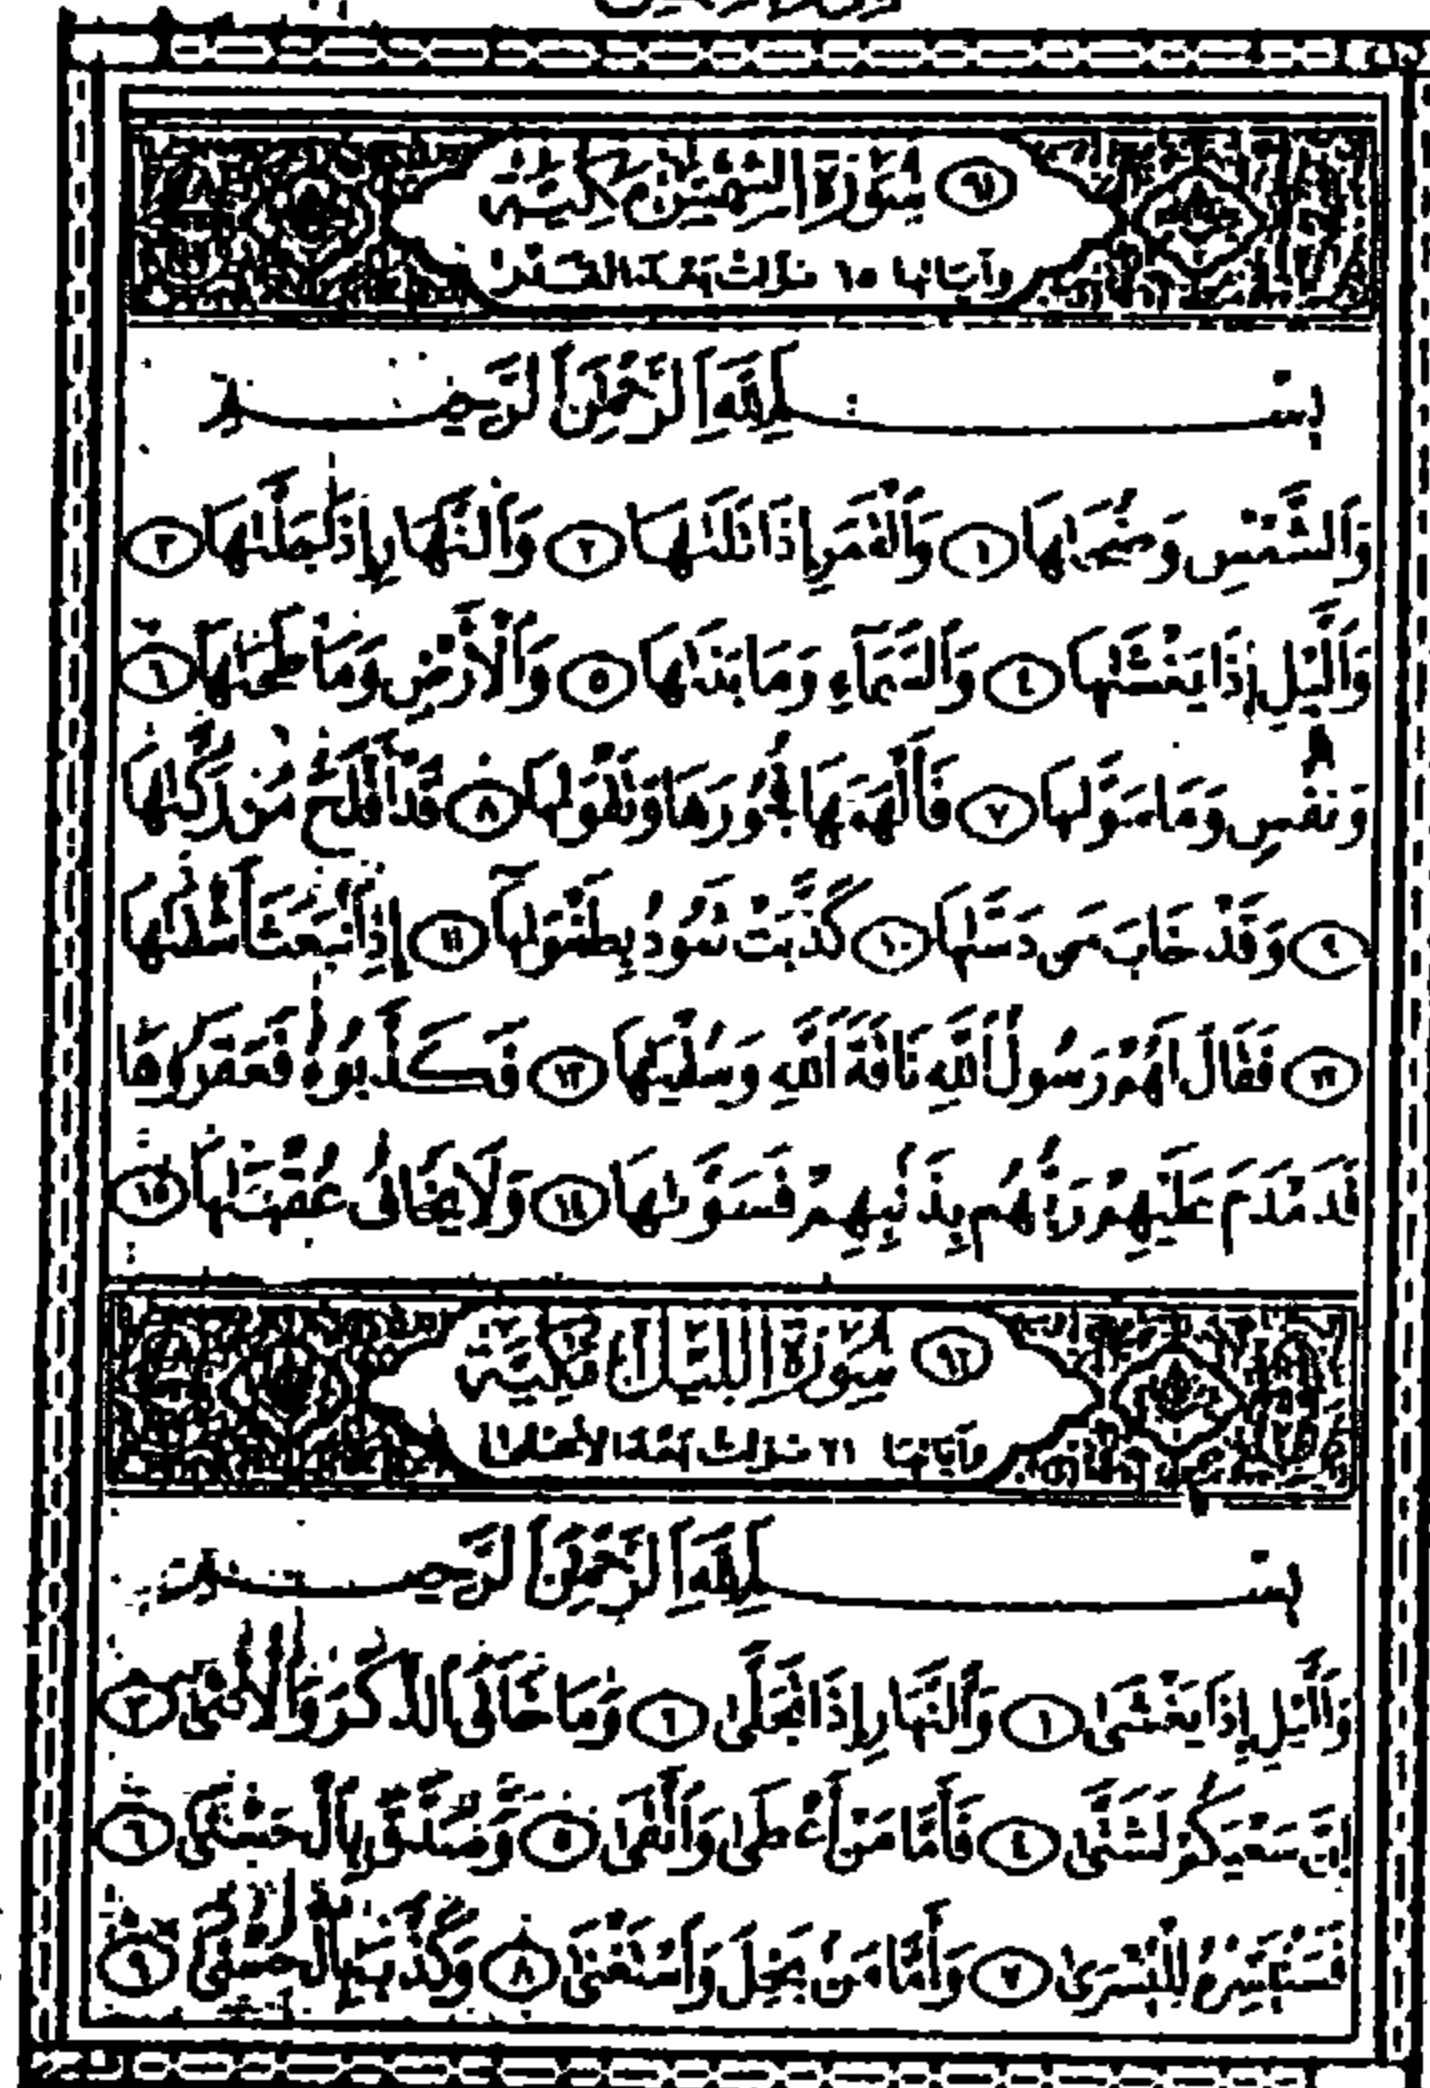 (٩١) سُورَةُ الشَّمْسِ مَكِّيَّةٌ
وآياتها ١٥ نزلت بعد القدر
بِسْمِ اللَّهِ الرَّحْمَٰنِ الرَّحِيمِ
وَالشَّمْسِ وَضُحَىٰهَا ١ وَالْقَمَرِ إِذَا تَلَىٰهَا ٢ وَالنَّهَارِ إِذَا جَلَّىٰهَا ٣
وَالَّيْلِ إِذَا يَغْشَىٰهَا ٤ وَالسَّمَآءِ وَمَا بَنَىٰهَا ٥ وَالْأَرْضِ وَمَا طَحَىٰهَا ٦
وَنَفْسٍ وَمَا سَوَّىٰهَا ٧ فَأَلْهَمَهَا فُجُورَهَا وَتَقْوَىٰهَا ٨ قَدْ أَفْلَحَ مَن زَكَّىٰهَا
٩ وَقَدْ خَابَ مَن دَسَّىٰهَا ١٠ كَذَّبَتْ ثَمُودُ بِطَغْوَىٰهَآ ١١ إِذِ انۢبَعَثَ أَشْقَىٰهَا
١٢ فَقَالَ لَهُمْ رَسُولُ اللَّهِ نَاقَةَ اللَّهِ وَسُقْيَٰهَا ١٣ فَكَذَّبُوهُ فَعَقَرُوهَا
فَدَمْدَمَ عَلَيْهِمْ رَبُّهُم بِذَنۢبِهِمْ فَسَوَّىٰهَا ١٤ وَلَا يَخَافُ عُقْبَٰهَا ١٥
(٩٢) سُورَةُ اللَّيْلِ مَكِّيَّةٌ
وآياتها ٢١ نزلت بعد الأعلى
بِسْمِ اللَّهِ الرَّحْمَٰنِ الرَّحِيمِ
وَالَّيْلِ إِذَا يَغْشَىٰ ١ وَالنَّهَارِ إِذَا تَجَلَّىٰ ٢ وَمَا خَلَقَ الذَّكَرَ وَالْأُنثَىٰٓ ٣
إِنَّ سَعْيَكُمْ لَشَتَّىٰ ٤ فَأَمَّا مَنْ أَعْطَىٰ وَاتَّقَىٰ ٥ وَصَدَّقَ بِالْحُسْنَىٰ ٦
فَسَنُيَسِّرُهُ لِلْيُسْرَىٰ ٧ وَأَمَّا مَنۢ بَخِلَ وَاسْتَغْنَىٰ ٨ وَكَذَّبَ بِالْحُسْنَىٰ ٩